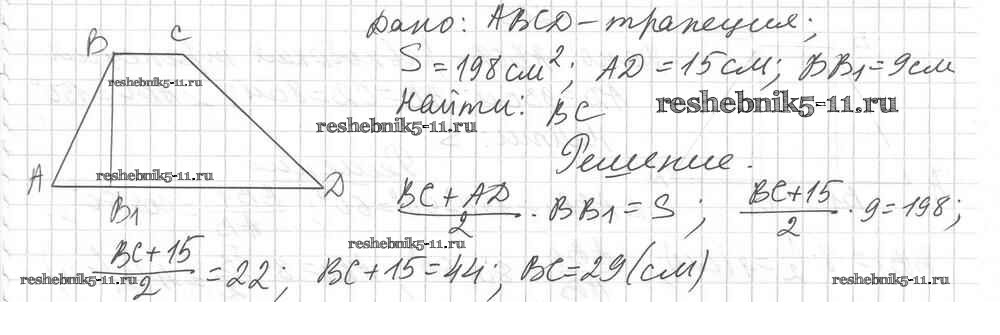 Дано: ABCD - трапеция;
S = 198 см²; AD = 15 см; BB₁ = 9 см
Найти: BC
Решение.
(BC + AD)/2 · BB₁ = S; (BC + 15)/2 · 9 = 198;
(BC + 15)/2 = 22; BC + 15 = 44; BC = 29 (см)
B C
A D
B₁
reshebnik5-11.ru
reshebnik5-11.ru
reshebnik5-11.ru
reshebnik5-11.ru
reshebnik5-11.ru
reshebnik5-11.ru
reshebnik5-11.ru